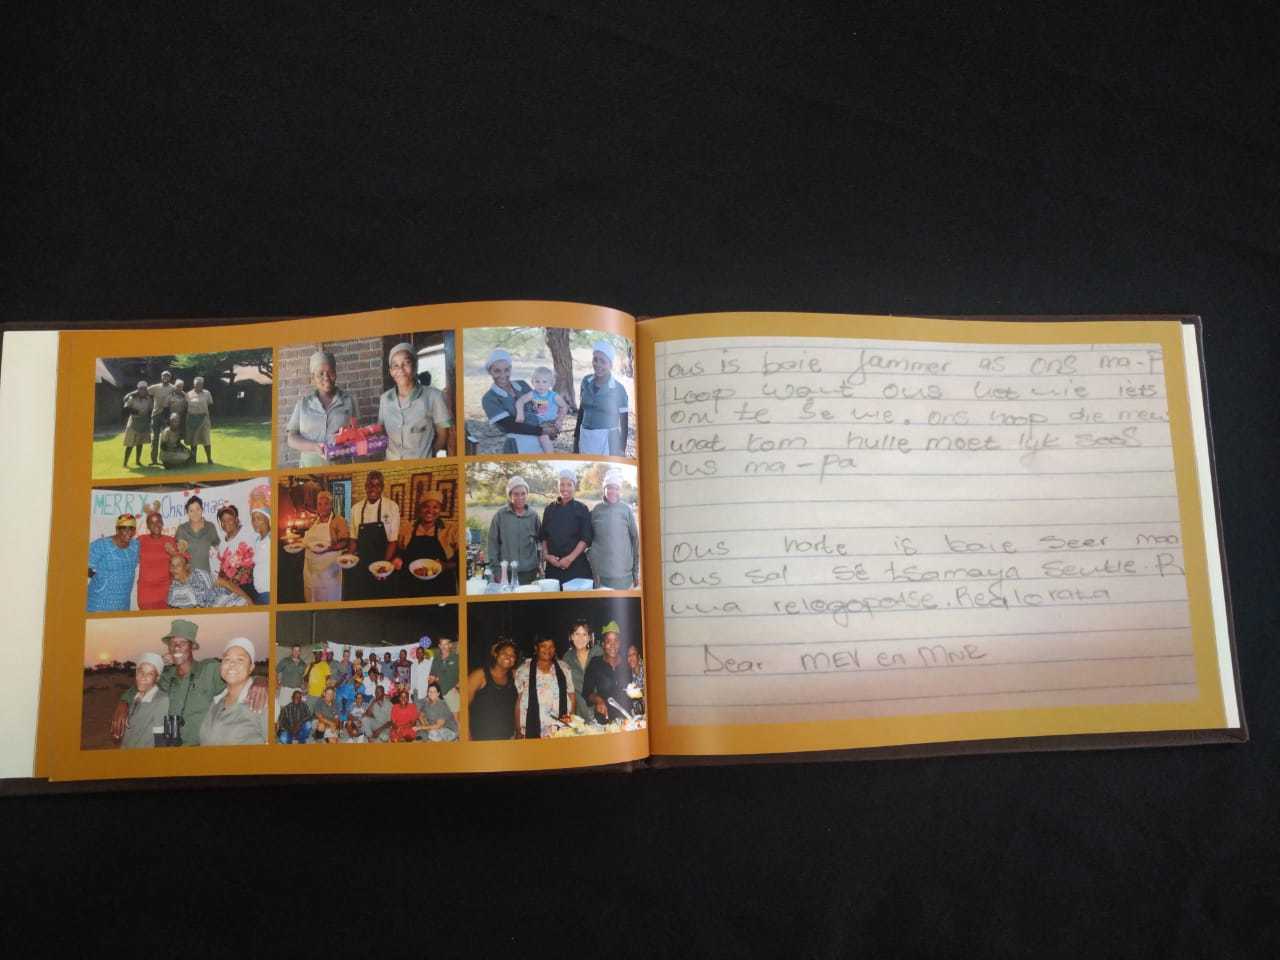 MERRY Christmas
ous is baie Jammer as ons ma-P
Loop want ous het nie iets
om te se nie. ons hoop die men
wat kom hulle moet lyk soos
ous ma-pa
ous harte is baie seer maa
ous sal sê tsamaya sentle. R
una relogopotse. Realorata
Dear MEV en MNR